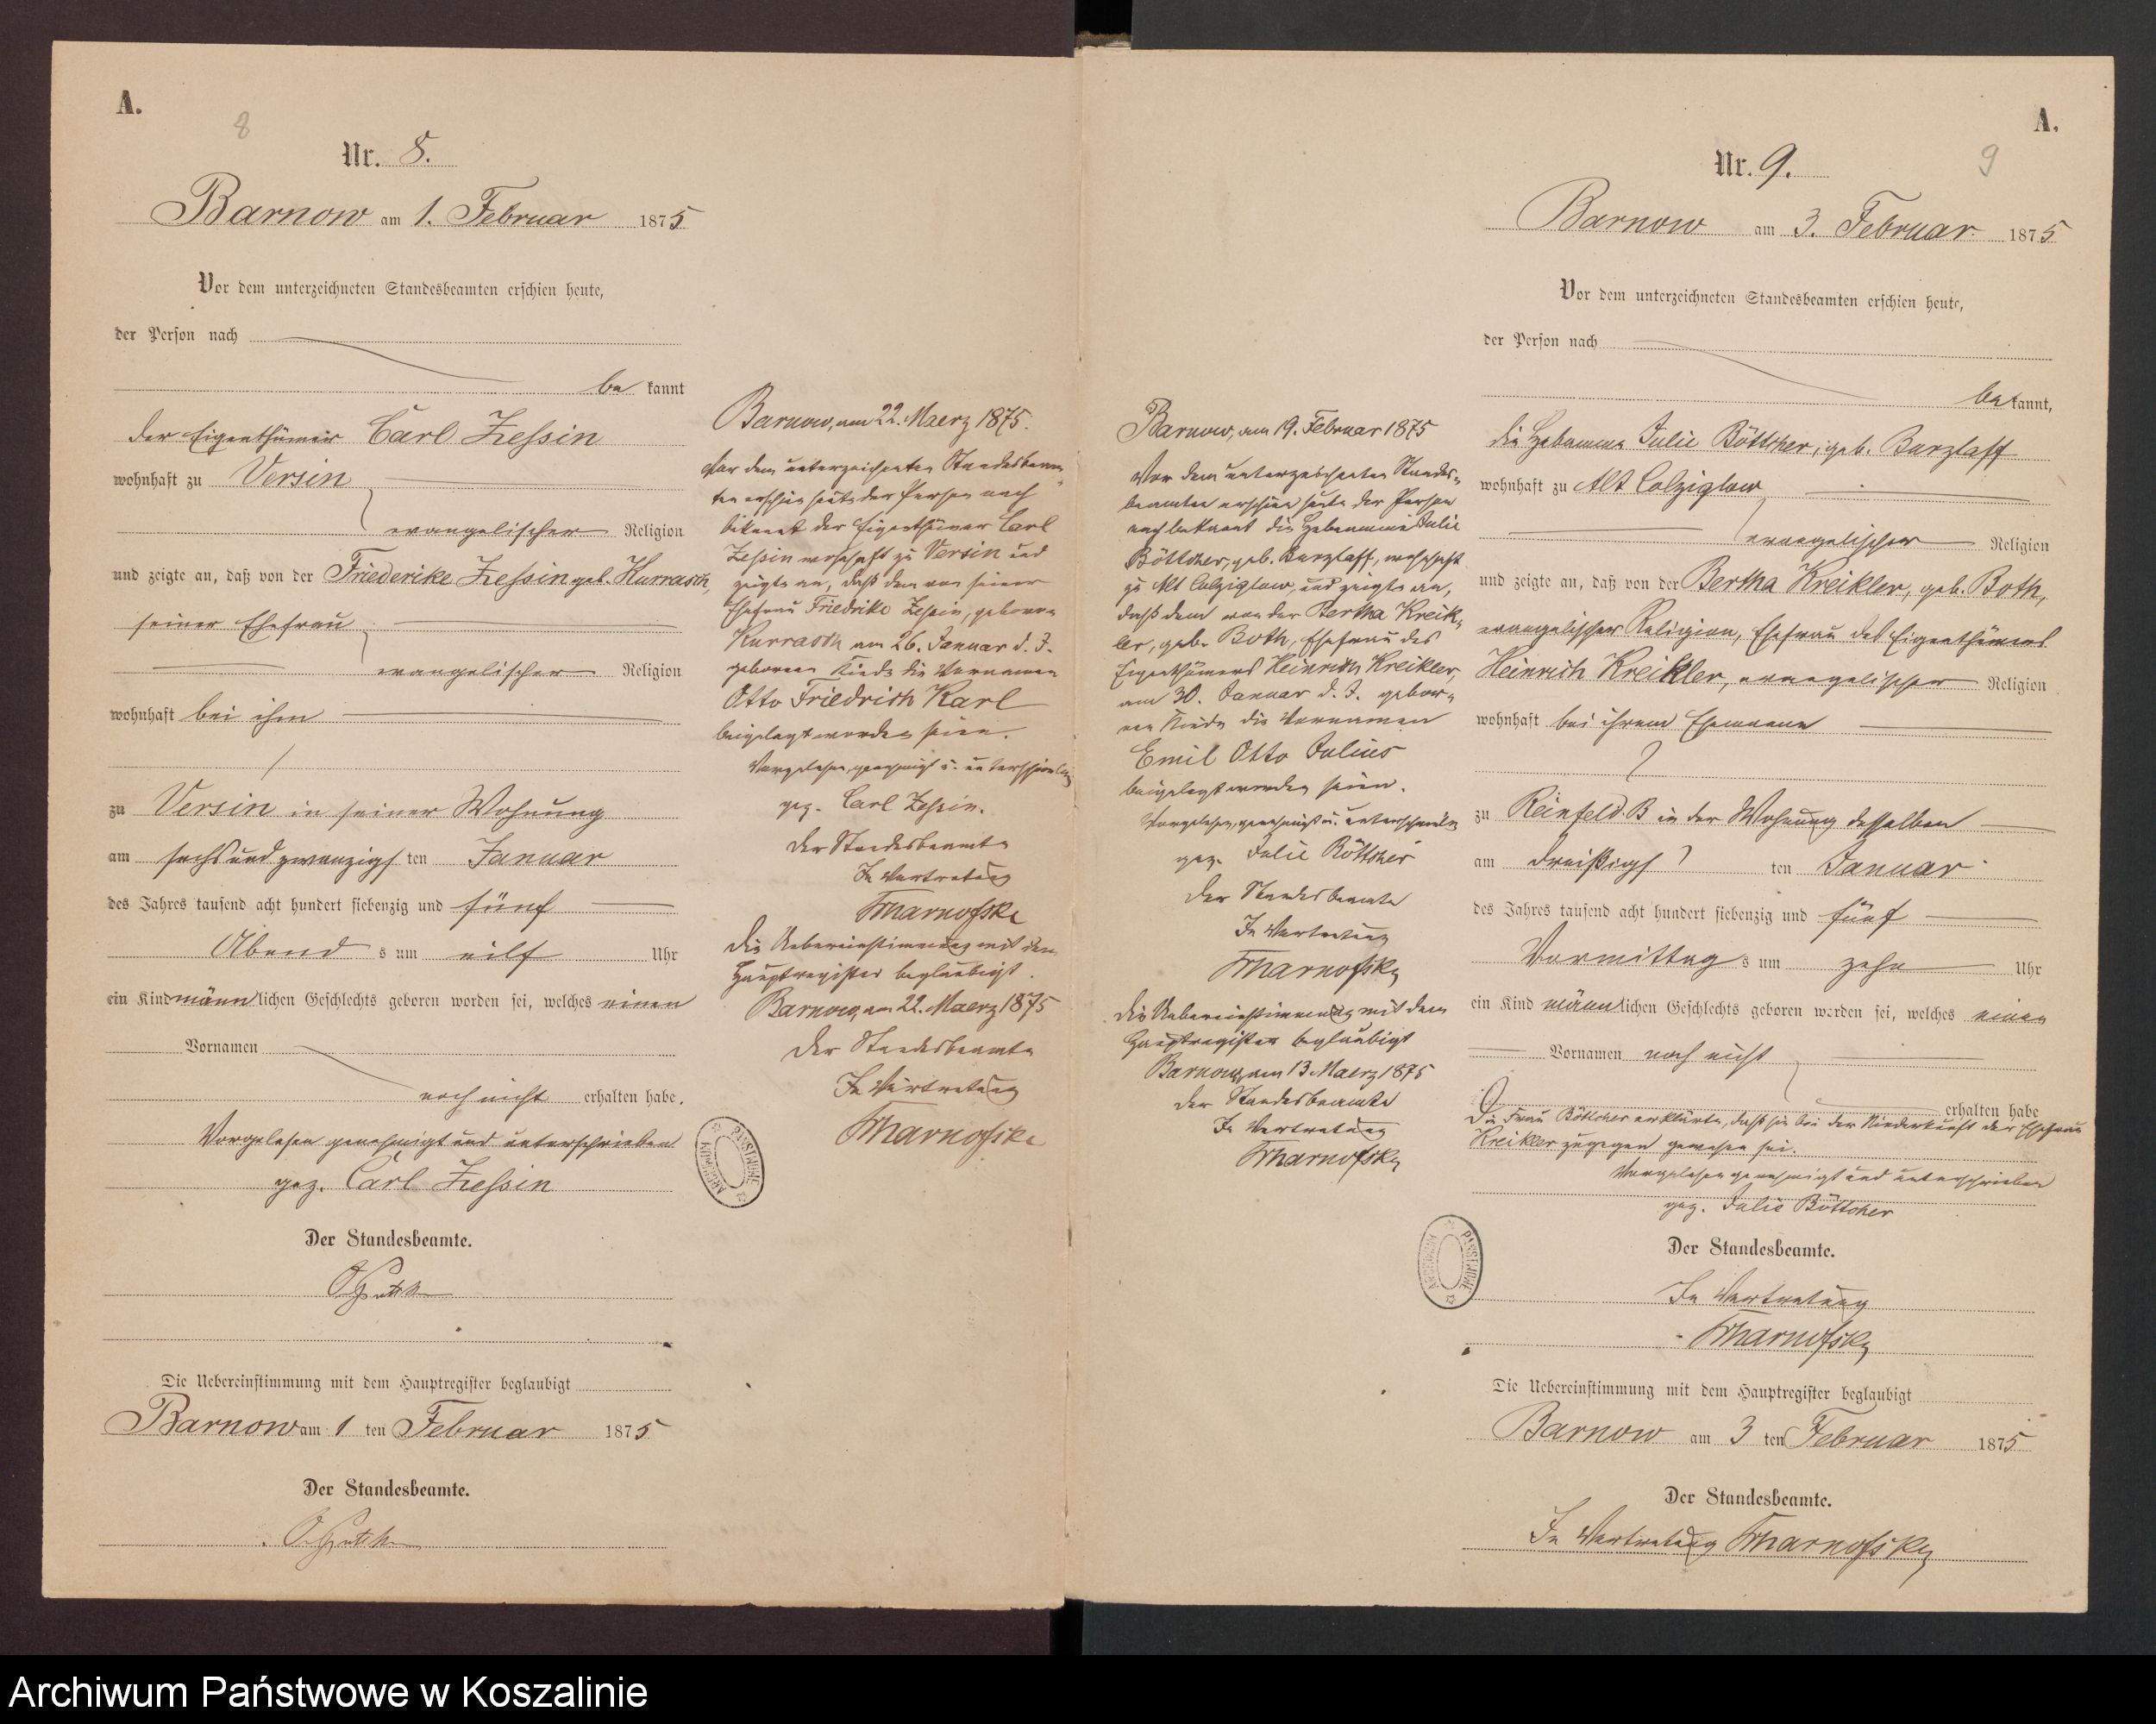 A.
8
Nr. 8.
Barnow am 1. Februar 1875
Vor dem unterzeichneten Standesbeamten erschien heute,
der Person nach
be kannt
der Eigenthümer Carl Zessin
wohnhaft zu Versin
evangelischer Religion
und zeigte an, daß von der Friederike Zessin geb. Kurrasch,
seiner Ehefrau
evangelischer Religion
wohnhaft bei ihm
zu Versin in seiner Wohnung
am sechs und zwanzigs ten Januar
des Jahres tausend acht hundert siebenzig und fünf
Abend s um eilf Uhr
ein Kind männlichen Geschlechts geboren worden sei, welches einen
Vornamen
noch nicht erhalten habe.
Vorgelesen genehmigt und unterschrieben
gez. Carl Zessin
Der Standesbeamte.
Die Uebereinstimmung mit dem Hauptregister beglaubigt
Barnow am 1 ten Februar 1875
Der Standesbeamte.
Barnow, am 22. Maerz 1875.
Vor dem unterzeichneten Standesbeam-
ten erschien heute der Person nach
bekannt der Eigenthümer Carl
Zessin wohnhaft zu Versin und
zeigte an, daß dem von seiner
Ehefrau Friedrike Zessin, geborne
Kurrasch am 26. Januar d. J.
geborenen Kinde die Vornamen
Otto Friedrich Karl
beigelegt worden seien.
Vorgelesen, genehmigt u. unterschrieben
gez. Carl Zessin.
Der Standesbeamte
In Vertretung
Die Uebereinstimmung mit dem
Hauptregister beglaubigt.
Barnow, am 22. Maerz 1875
Der Standesbeamte
In Vertretung
ARCHIWUM PAŃSTWOWE
A.
9
Nr. 9.
Barnow am 3. Februar 1875
Vor dem unterzeichneten Standesbeamten erschien heute,
der Person nach
be kannt,
die Hebamme Julie Böttcher, geb. Barzlaff
wohnhaft zu Alt Colziglow
evangelischer Religion
und zeigte an, daß von der Bertha Kreikler, geb. Both,
evangelischer Religion, Ehefrau des Eigenthümers
Heinrich Kreikler, evangelischer Religion
wohnhaft bei ihrem Ehemanne
zu Reinfeld B in der Wohnung desselben
am dreißigs ten Januar
des Jahres tausend acht hundert siebenzig und fünf
Vormittag s um zehn Uhr
ein Kind männlichen Geschlechts geboren worden sei, welches einen
Vornamen noch nicht
erhalten habe
Die Frau Böttcher erklärte, daß sie bei der Niederkunft der Ehefrau
Kreikler zugegen gewesen sei.
Vorgelesen genehmigt und unterschrieben
gez. Julie Böttcher
Der Standesbeamte.
In Vertretung
Die Uebereinstimmung mit dem Hauptregister beglaubigt
Barnow am 3 ten Februar 1875
Der Standesbeamte.
In Vertretung
Barnow, am 19. Februar 1875
Vor dem unterzeichneten Standes-
beamten erschien heute der Person
nach bekannt die Hebamme Julie
Böttcher, geb. Barzlaff, wohnhaft
zu Alt Colziglow, und zeigte an,
daß dem von der Bertha Kreik-
ler, geb. Both, Ehefrau des
Eigenthümers Heinrich Kreikler,
am 30. Januar d. J. gebor-
nen Kinde die Vornamen
Emil Otto Julius
beigelegt worden seien.
Vorgelesen, genehmigt u. unterschrieben
gez. Julie Böttcher
Der Standesbeamte
In Vertretung
Die Uebereinstimmung mit dem
Hauptregister beglaubigt
Barnow, am 13 Maerz 1875
Der Standesbeamte
In Vertretung
ARCHIWUM PAŃSTWOWE
Archiwum Państwowe w Koszalinie